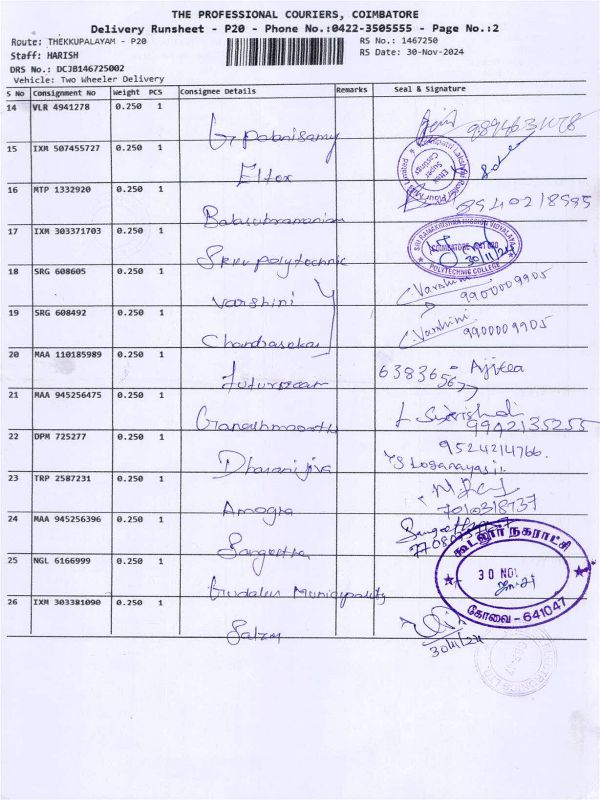 THE PROFESSIONAL COURIERS, COIMBATORE
Delivery Runsheet - P20 - Phone No.:0422-3505555 - Page No.:2
Route: THEKKUPALAYAM - P20
RS No.: 1467250
Staff: HARISH
RS Date: 30-Nov-2024
DRS No.: DCJB146725002
Vehicle: Two Wheeler Delivery
S No Consignment No Weight PCS Consignee Details Remarks Seal & Signature
14 VLR 4941278 0.250 1
15 IXM 507455727 0.250 1
Eltex
16 MTP 1332920 0.250 1
Balasubramanian 8940218595
17 IXM 303371703 0.250 1
SRKV polytechnic
SRI RAMAKRISHNA MISSION VIDYALAYA
POLYTECHNIC COLLEGE
30/11/24
18 SRG 608605 0.250 1
Varshini C Varshini 9900009905
19 SRG 608492 0.250 1
Chandrasekar C. Varshini 9900009905
20 MAA 110185989 0.250 1
21 MAA 945256475 0.250 1
Ganeshmoorthy 9942135255
22 DPM 725277 0.250 1
9524214766.
23 TRP 2587231 0.250 1
Amogra 7010318737
24 MAA 945256396 0.250 1
Sangeetha
25 NGL 6166999 0.250 1
Gudalur Municipality
கூடலூர் நகராட்சி
30 NOV
கோவை - 641047
26 IXM 303381090 0.250 1
30/11/24